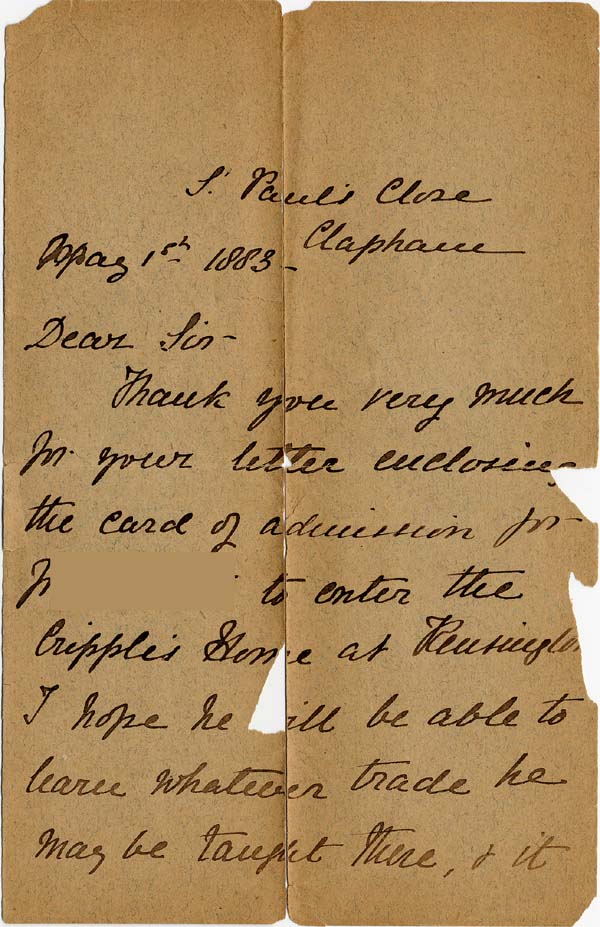 S. Paul's Close
Clapham
May 1st 1883 -
Dear Sir -
Thank you very much
for your letter enclosing
the card of admission for
to enter the
Cripples Home at Kensington
I hope he will be able to
learn whatever trade he
may be taught there, & it